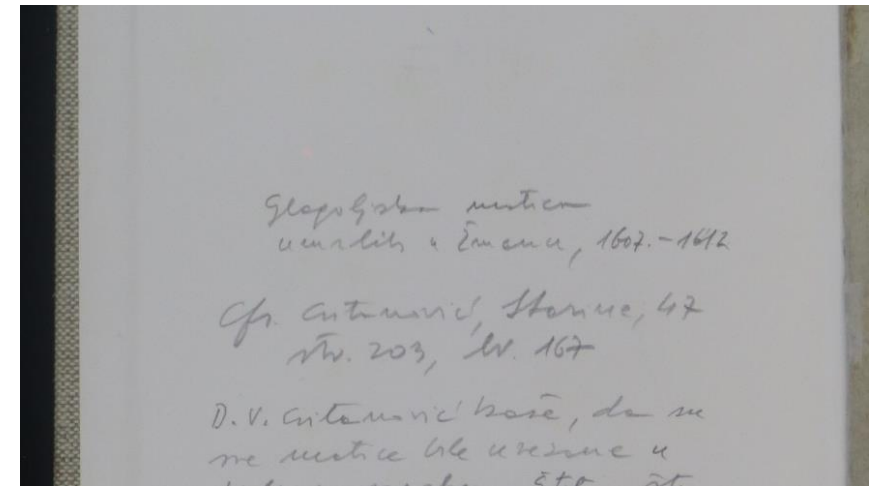 Glagoljska matica
umrlih u Žmanu, 1607.-1612
Cfr. Cvitanović, Starine, 47
str. 203, br. 167
D. V. Cvitanović kaže, da su
sve matice bile uvezane u
Eto